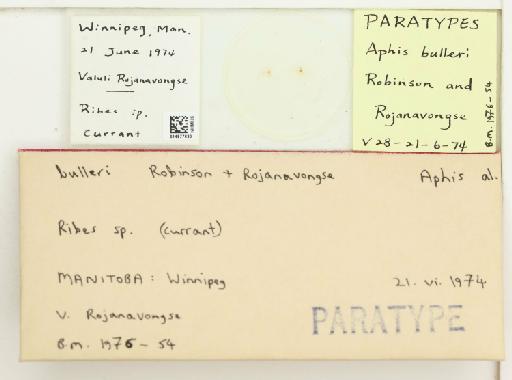 Winnipeg, Man.
21 June 1974
Valuli Rojanavongse
Ribes sp.
currant
PARATYPES
Aphis bulleri
Robinson and
Rojanavongse
V28-21-6-74
B.m. 1976-54
bulleri Robinson + Rojanavongse Aphis al.
Ribes sp. (currant)
MANITOBA: Winnipeg 21. vi. 1974
V. Rojanavongse
B.m. 1976-54
PARATYPE